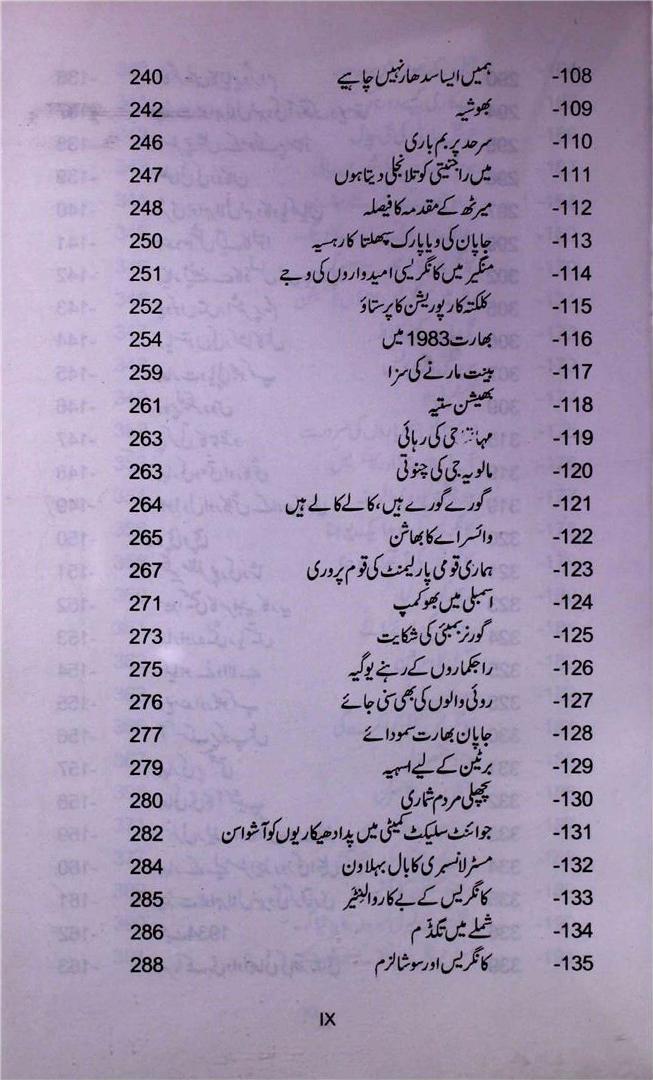 108- ہمیں ایسا سدھار نہیں چاہیے 240
109- بھوشیہ 242
110- سرحد پر بم باری 246
111- میں راجنیتی کو تلانجلی دیتا ہوں 247
112- میرٹھ کے مقدمہ کا فیصلہ 248
113- جاپان کی ویاپارک سپھلتا کا رہسیہ 250
114- منگیر میں کانگریسی امیدواروں کی وجے 251
115- کلکتہ کارپوریشن کا پرستاؤ 252
116- بھارت 1983 میں 254
117- بینت مارنے کی سزا 259
118- بھیشن ستیہ 261
119- مہاتما جی کی رہائی 263
120- مالویہ جی کی چنوتی 263
121- گورے گورے ہیں، کالے کالے ہیں 264
122- وائسرائے کا بھاشن 265
123- ہماری قومی پارلیمنٹ کی قوم پروری 267
124- اسمبلی میں بھوکمپ 271
125- گورنر بمبئی کی شکایت 273
126- راجکماروں کے رہنے یوگیہ 275
127- روئی والوں کی بھی سنی جائے 276
128- جاپان بھارت سمودائے 277
129- برٹین کے لیے اسہیہ 279
130- پچھلی مردم شماری 280
131- جوائنٹ سلیکٹ کمیٹی میں پدادھیکاریوں کو آشواسن 282
132- مسٹر لانسبری کا بال بہلاون 284
133- کانگریس کے بے کار والنٹیر 285
134- شملے میں تگڈم 286
135- کانگریس اور سوشالزم 288
IX